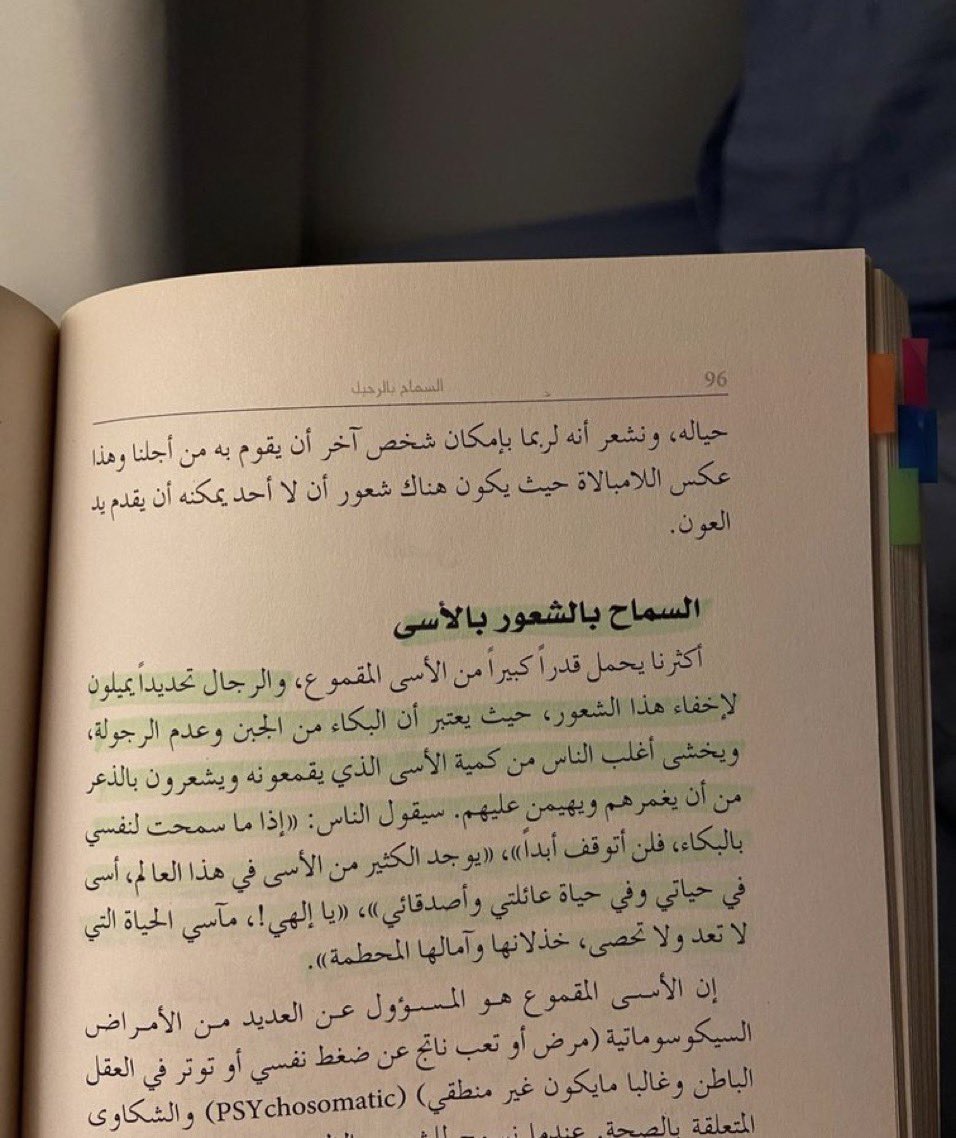 96
السماح بالرحيل
حياله، ونشعر أنه لربما بإمكان شخص آخر أن يقوم به من أجلنا وهذا
عكس اللامبالاة حيث يكون هناك شعور أن لا أحد يمكنه أن يقدم يد
العون.
السماح بالشعور بالأسى
أكثرنا يحمل قدراً كبيراً من الأسى المقموع، والرجال تحديداً يميلون
لإخفاء هذا الشعور، حيث يعتبر أن البكاء من الجبن وعدم الرجولة،
ويخشى أغلب الناس من كمية الأسى الذي يقمعونه ويشعرون بالذعر
من أن يغمرهم ويهيمن عليهم. سيقول الناس: «إذا ما سمحت لنفسي
بالبكاء، فلن أتوقف أبداً»، «يوجد الكثير من الأسى في هذا العالم، أسى
في حياتي وفي حياة عائلتي وأصدقائي»، «يا إلهي!، مآسي الحياة التي
لا تعد ولا تحصى، خذلانها وآمالها المحطمة».
إن الأسى المقموع هو المسؤول عن العديد من الأمراض
السيكوسوماتية (مرض أو تعب ناتج عن ضغط نفسي أو توتر في العقل
الباطن وغالبا مايكون غير منطقي) (PSYchosomatic) والشكاوى
المتعلقة بالصحة. عندما نسمح